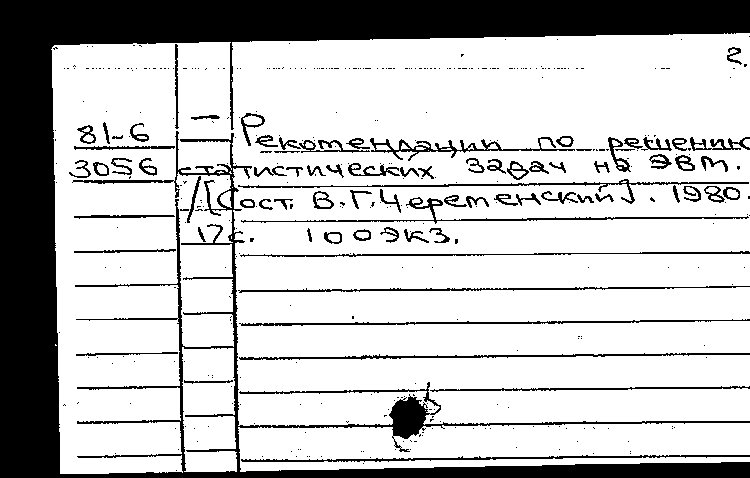 2.
81-6 — Рекомендации по решению
3056 статистических задач на ЭВМ.
/[Сост. В.Г.Череменский]. 1980.
17с. 100экз.